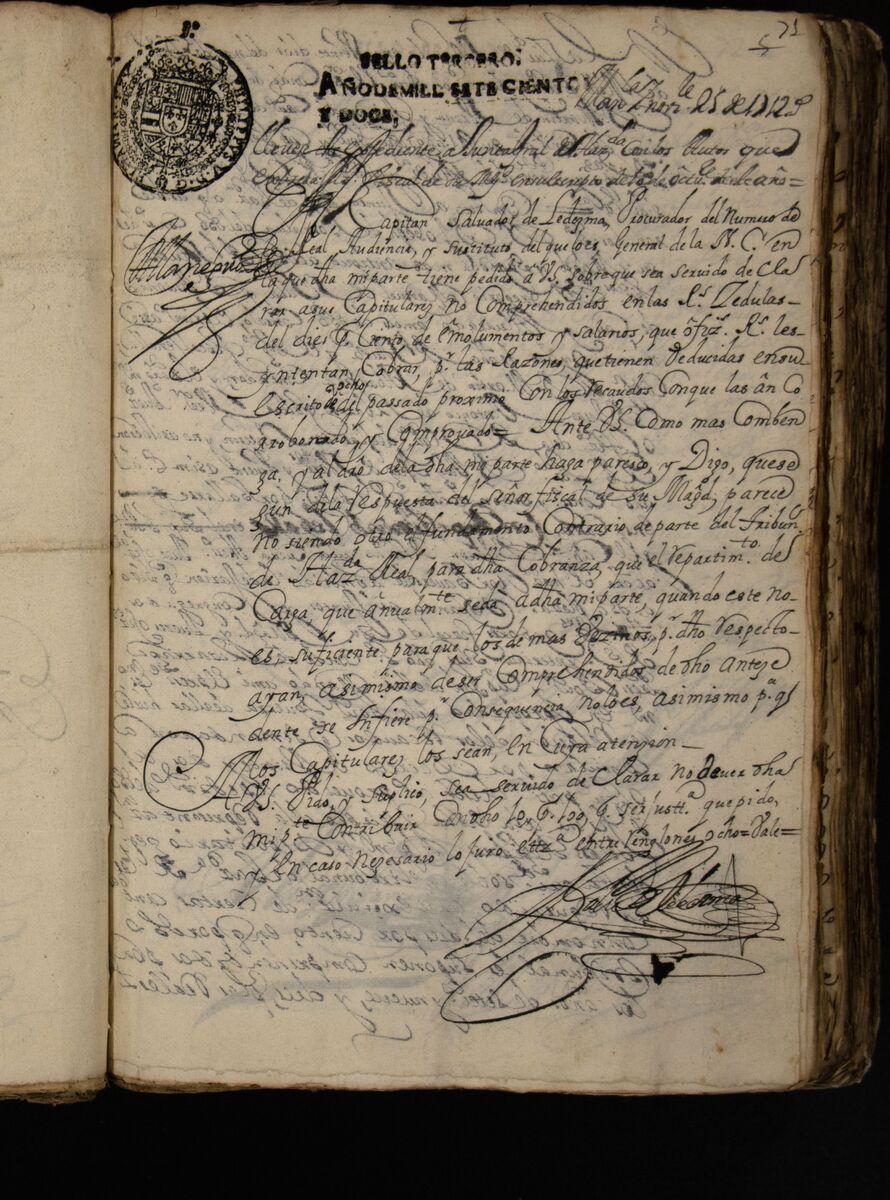 71
SELLO TERCERO,
AÑO DE MIL SETECIENTOS
Y DOCE,
25 de 1712
Lleuese este expediente a Junta Gral de Haz.da con los Autos que
Fiscal de su Mg.d
Capitan Saluador de Ledezma, Procurador del Numero de
Real Audiencia, y sustituto del que lo es General de la N. C. en
la que dha mi parte tiene pedido a V.S. sobre que sea seruido de Cla
rar a sus Capitulares no Comprehendidos en las R.s Zedulas
del dies p.r Ciento de emolumentos y salarios, que ofiz.s R.s les
yntentan Cobrar, p.r las Razones, que tienen deducidas en su
escrito de ocho del passado proximo Con los recaudos Con que las an Co
rroborado, y Comprouado = Ante V.S. Como mas Comben
ga, y al dro de la dha mi parte haga paresco, y Digo, que se
gun da la respuesta del señor fiscal de su Magd, parece
no siendo otro el fundamento Contrario de parte del tribun.l
de Haz.da Real, para dha Cobranza, que el repartim.to del
Carga, que anualm.te se da a dha mi parte, quando este no
es suficiente para que los demas Vezinos, p.r dho respecto
ayan asimismo de ser Comprehendidos de dho antese
dente se Infiere p.r Consequencia no lo es, asimismo p.a q
los Capitulares los sean, en Cuya atenzion
A V.S. Pido, y suplico, sea seruido de Clarar no deuer dha
mi p.te Contribuir Con dho 10 p. 100, p. ser justt.a que pido,
y en caso nezesario lo juro ettz.a entre renglones, ocho = Vale =
Salu.r de Ledezma